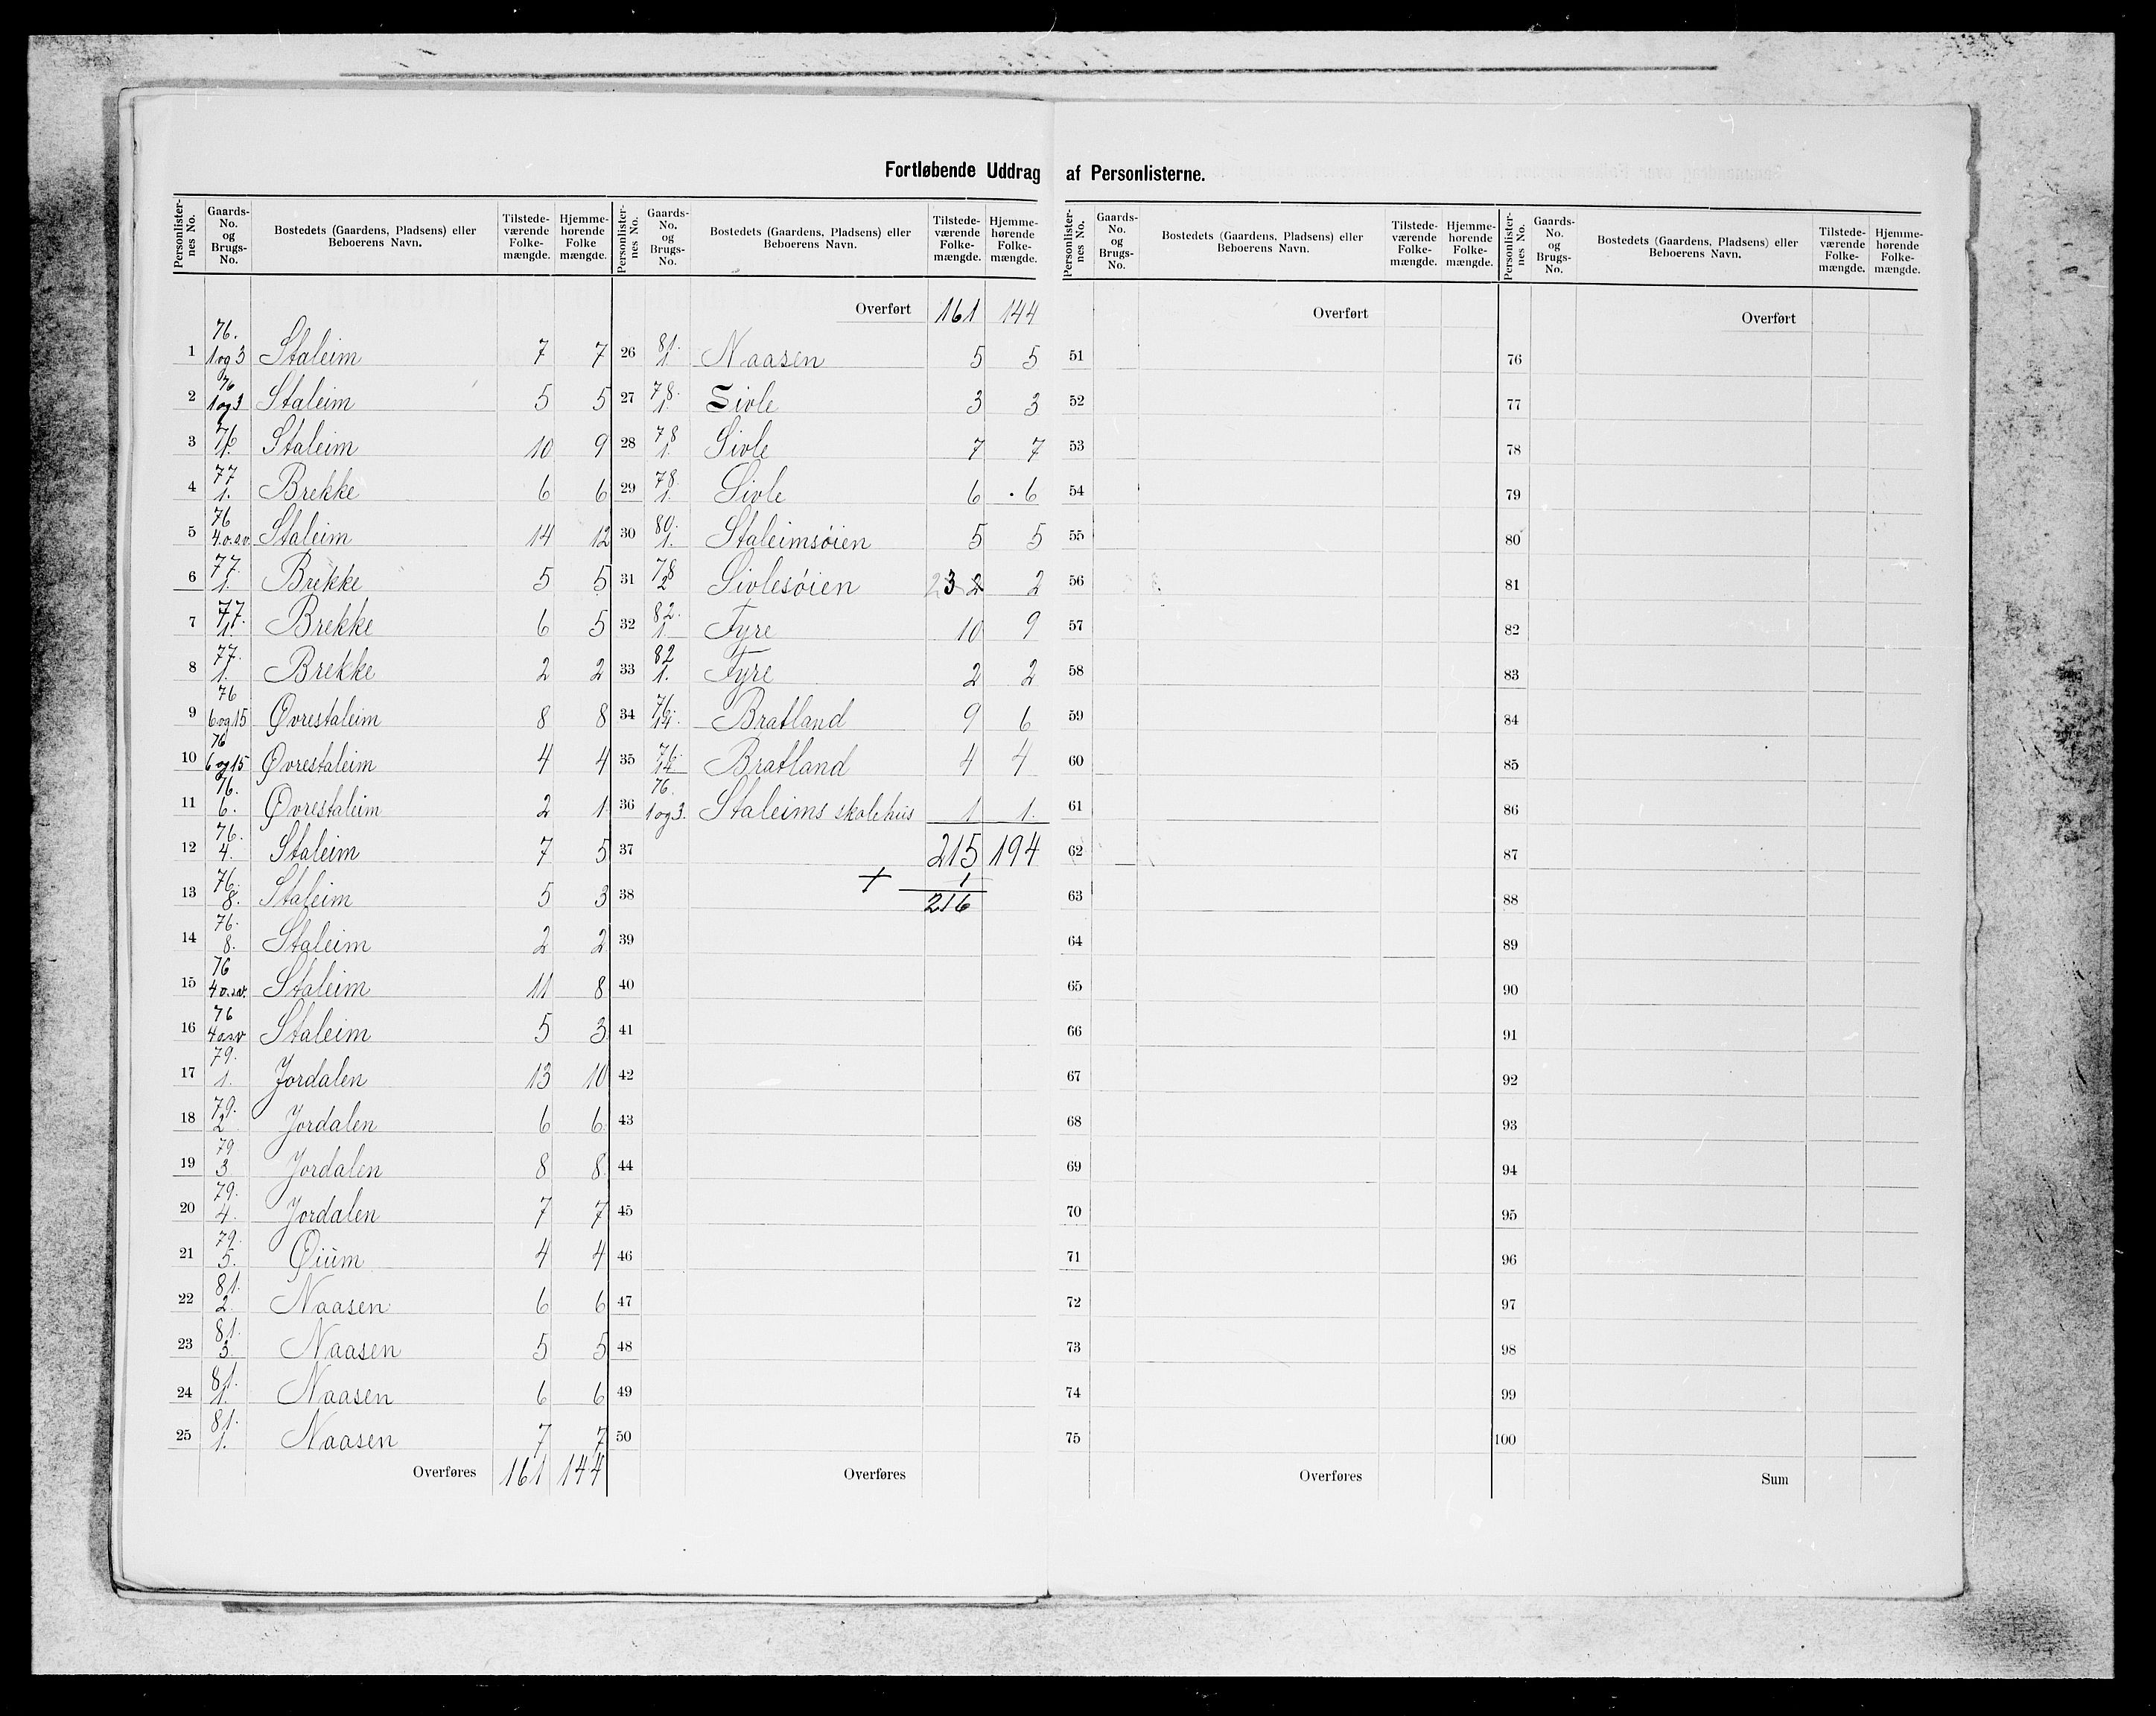 Fortløbende Uddrag af Personlisterne.
Personlister-nes No. Gaards-No. og Brugs-No. Bostedets (Gaardens, Pladsens) eller Beboerens Navn. Tilstede-værende Folke-mængde. Hjemme-hørende Folke mængde.
1 76. 1 og 3 Staleim 7 7
2 76 1 og 3 Staleim 5 5
3 76 1. Staleim 10 9
4 77 1. Brekke 6 6
5 76 4.o.s.v. Staleim 14 12
6 77. 1. Brekke 5 5
7 77. 1. Brekke 6 5
8 77. 1. Brekke 2 2
9 76 6 og 15 Øvrestaleim 8 8
10 76 6 og 15 Øvrestaleim 4 4
11 76. 6. Øvrestaleim 2 1
12 76. 4. Staleim 7 5
13 76. 8. Staleim 5 3
14 76. 8. Staleim 2 2
15 76 4 o.s.v. Staleim 11 8
16 76 4 osv Staleim 5 3
17 79. 1. Jordalen 13 10
18 79. 2 Jordalen 6 6
19 79 3 Jordalen 8 8
20 79. 4. Jordalen 7 7
21 79. 5. Øium 4 4
22 81. 2. Naasen 6 6
23 81. 3. Naasen 5 5
24 81. 1. Naasen 6 6
25 81. 1. Naasen 7 7
Overføres 161 144
Personlister-nes No. Gaards-No. og Brugs-No. Bostedets (Gaardens, Pladsens) eller Beboerens Navn. Tilstede-værende Folke-mængde. Hjemme-hørende Folke-mængde.
Overført 161 144
26 81. 1 Naasen 5 5
27 78. 1. Sivle 3 3
28 78 1. Sivle 7 7
29 78 1. Sivle 6 6
30 80. 1. Staleimsøien 5 5
31 78 2 Sivlesøien 2 3 2 2
32 82. 1. Fyre 10 9
33 82 1. Fyre 2 2
34 76. 14. Bratland 9 6
35 76. 14 Bratland 4 4
36 76. 1 og 3. Staleims skolehus 1 1.
37 215 194
38 + 1
216
39
40
41
42
43
44
45
46
47
48
49
50
Overføres
Personlister-nes No. Gaards-No. og Brugs-No. Bostedets (Gaardens, Pladsens) eller Beboerens Navn. Tilstede-værende Folke-mængde. Hjemme-hørende Folke-mængde.
Overført
51
52
53
54
55
56
57
58
59
60
61
62
63
64
65
66
67
68
69
70
71
72
73
74
75
Overføres
Personlister-nes No. Gaards-No. og Brugs-No. Bostedets (Gaardens, Pladsens) eller Beboerens Navn. Tilstede-værende Folke-mængde. Hjemme-hørende Folke-mængde.
Overført
76
77
78
79
80
81
82
83
84
85
86
87
88
89
90
91
92
93
94
95
96
97
98
99
100
Sum